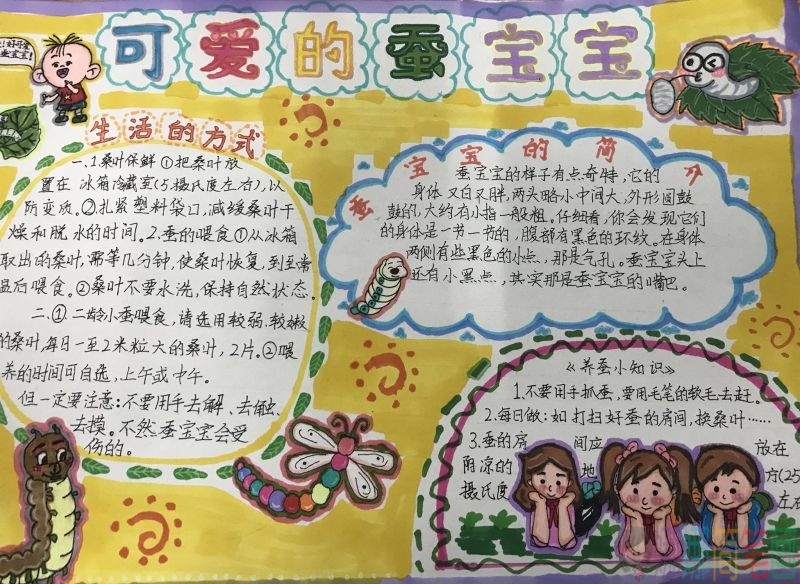 可爱的蚕宝宝
好可爱
蚕宝宝!
生活的方式
一、1.桑叶保鲜①把桑叶放
置在 冰箱冷藏室(5摄氏度左右),以
防变质。②扎紧塑料袋口,减缓桑叶干
燥和脱水的时间。2.蚕的喂食①从冰箱
取出的桑叶,需等几分钟,使桑叶恢复,到至常
温后喂食。②桑叶不要水洗,保持自然状态。
二、①二龄小蚕喂食,请选用较弱.较嫩
的桑叶,每日一至2米粒大的桑叶,2片。②喂
养的时间可自选,上午或中午。
但一定要注意:不要用手去解、去触、
去摸。不然蚕宝宝会受
伤的。
蚕宝宝的简介
蚕宝宝的样子有点奇特,它的
身体又白又胖,两头略小中间大,外形圆鼓
鼓的,大约有小指一般粗。仔细看,你会发现它们
的身体是一节一节的,腹部有黑色的环纹。在身体
两侧有些黑色的小点,那是气孔。蚕宝宝头上
还有小黑点,其实那是蚕宝宝的嘴巴。
《养蚕小知识》
1.不要用手抓蚕,要用毛笔的软毛去赶。
2.每日做:如打扫好蚕的房间,换桑叶……
3.蚕的房间应放在
阴凉的地方(25
摄氏度左右